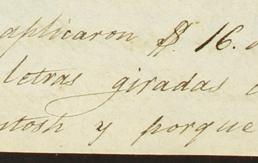 aplicaron $. 16. 
letras giradas
ntosh y porque